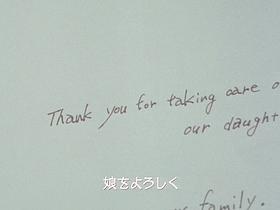 Thank you for taking care o
our daught
family.
娘をよろしく